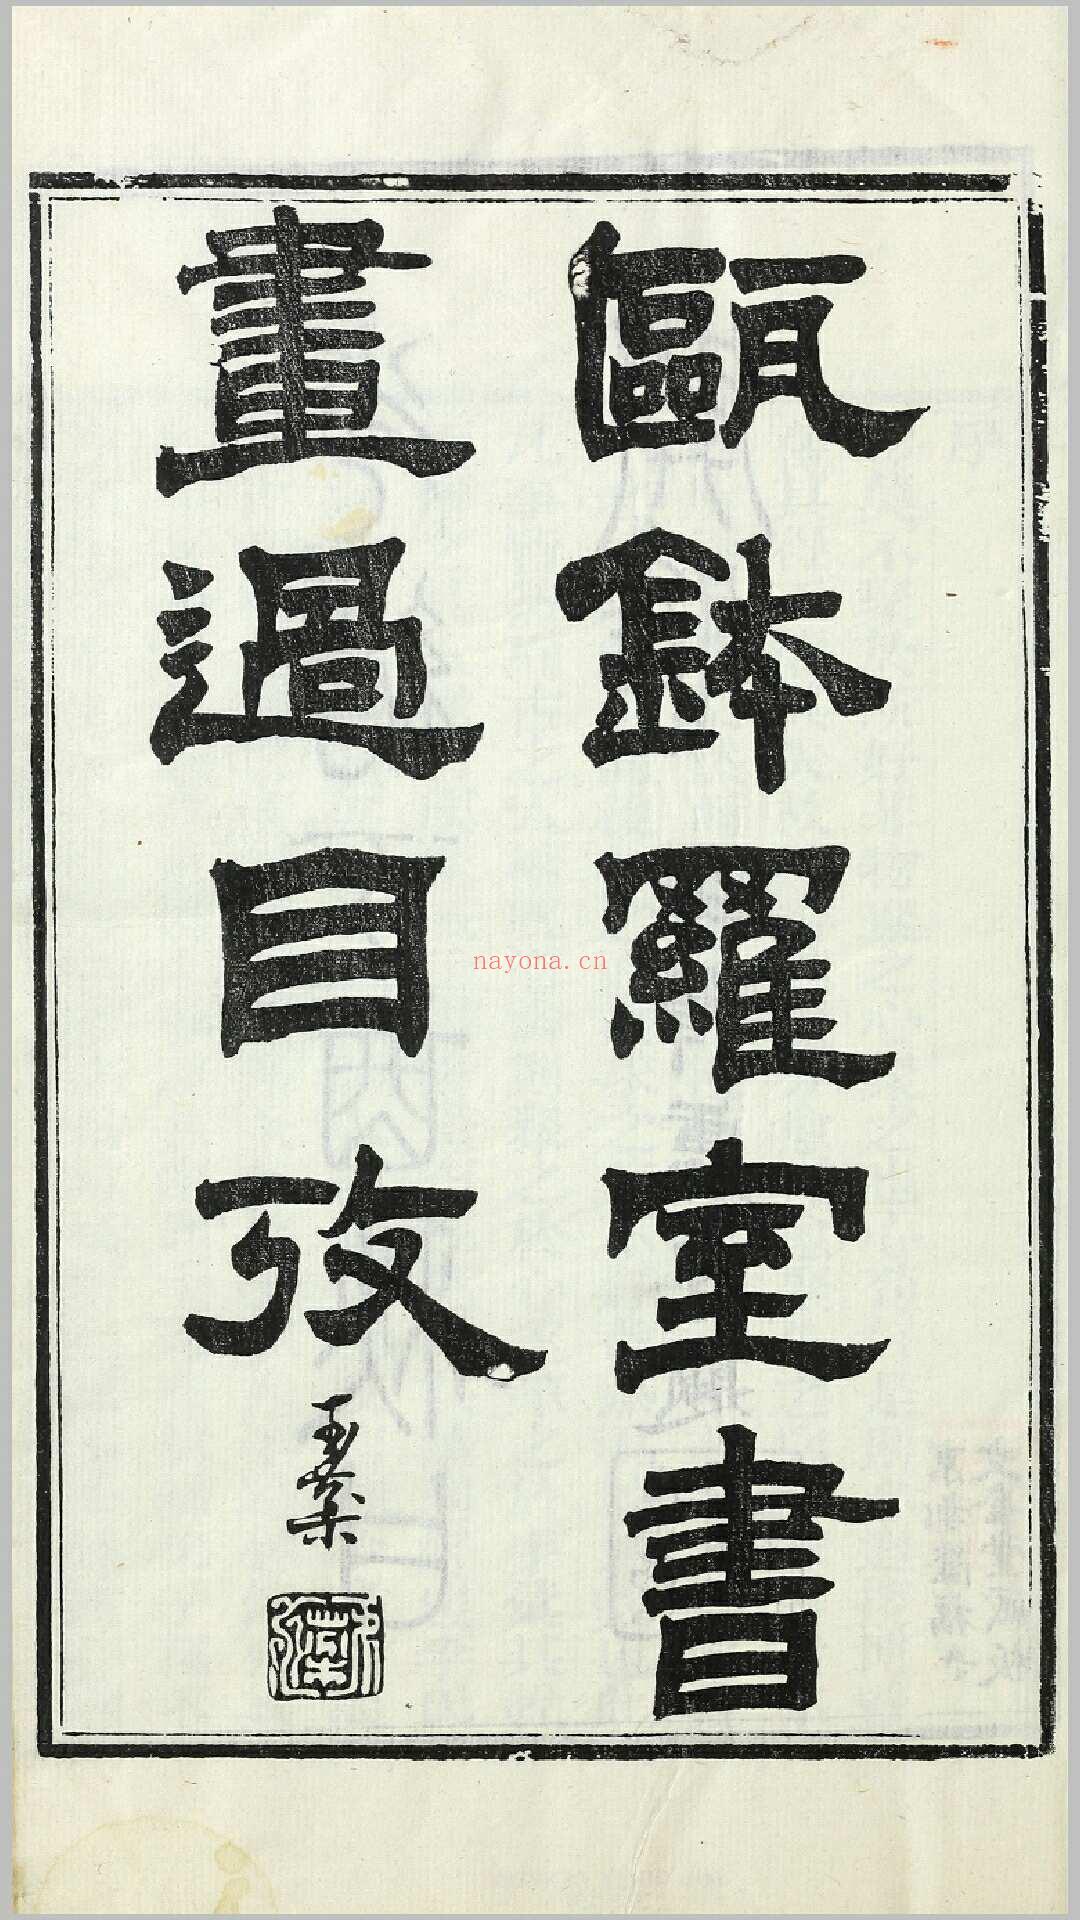 甌鉢羅室書
畫過目攷
玉棻
nayona.cn